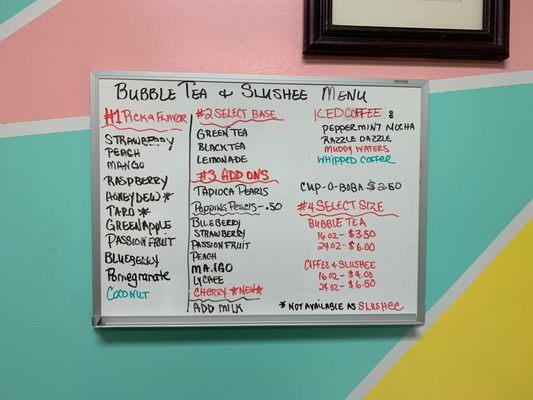 Bubble Tea & Slushee Menu
#1 Pick a Flavor
Strawberry
Peach
Mango
Raspberry
Honeydew *
Taro *
Green Apple
Passion Fruit
Blueberry
Pomegranate
Coconut
#2 Select Base
Green Tea
Black Tea
Lemonade
#3 Add Ons
Tapioca Pearls
Popping Pearls - .50
Blueberry
Strawberry
Passion Fruit
Peach
Mango
Lychee
Cherry *New*
Add Milk
Iced Coffee &
Peppermint Mocha
Razzle Dazzle
Muddy Waters
Whipped Coffee
Cup-O-Boba $2.50
#4 Select Size
Bubble Tea
16oz - $3.50
24oz - $6.00
Coffee & Slushee
16oz - $4.00
24oz - $6.50
* Not Available as Slushee